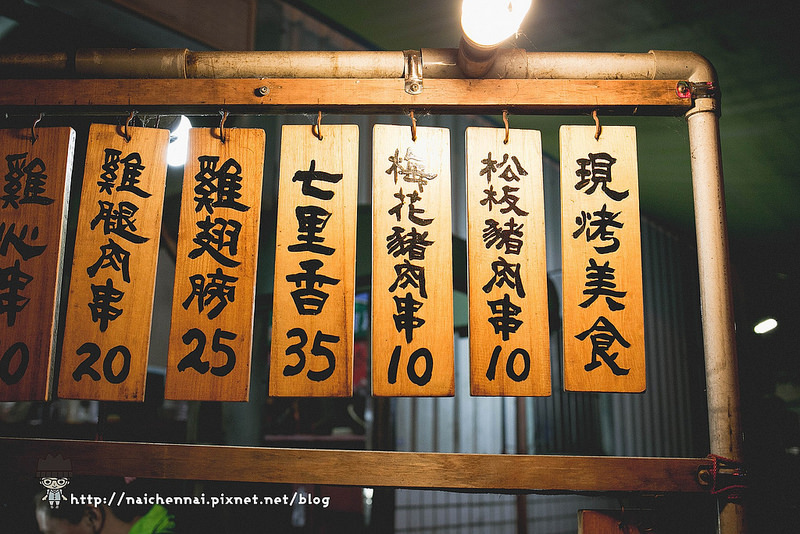 現烤美食
松板豬肉串 10
梅花豬肉串 10
七里香 35
雞翅膀 25
雞腿肉串 20
雞心串 0
http://naichennai.pixnet.net/blog